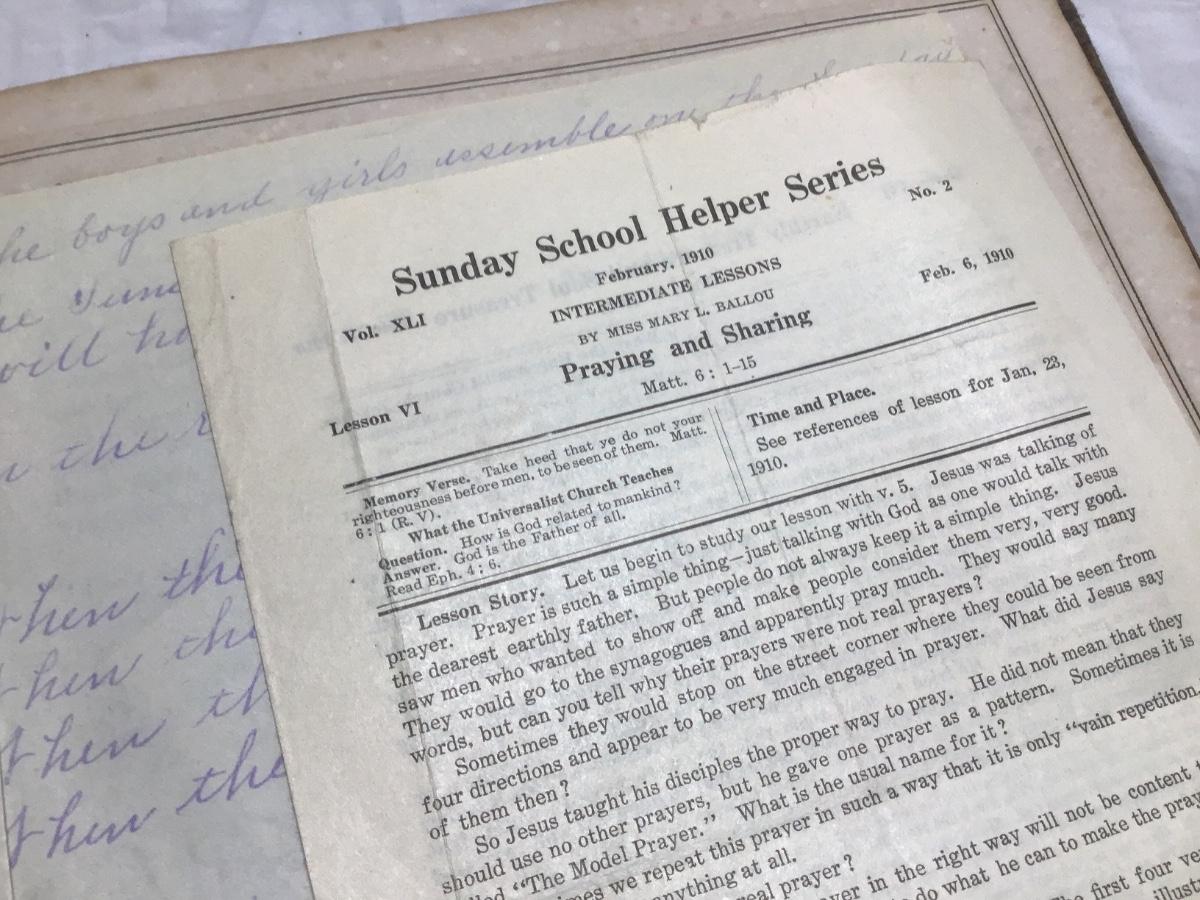 he boys and girls assemble on the
will
the
then the
then the
then th
then the
Sunday School Helper Series
February, 1910
Vol. XLI
No. 2
INTERMEDIATE LESSONS
BY MISS MARY L. BALLOU
Lesson VI
Praying and Sharing
Feb. 6, 1910
Matt. 6: 1–15
Memory Verse. Take heed that ye do not your
righteousness before men, to be seen of them. Matt.
6: 1 (R. V).
What the Universalist Church Teaches
Question. How is God related to mankind?
Answer. God is the Father of all.
Read Eph. 4: 6.
Time and Place.
See references of lesson for Jan. 23,
1910.
Lesson Story. Let us begin to study our lesson with v. 5. Jesus was talking of
prayer. Prayer is such a simple thing—just talking with God as one would talk with
the dearest earthly father. But people do not always keep it a simple thing. Jesus
saw men who wanted to show off and make people consider them very, very good.
They would go to the synagogues and apparently pray much. They would say many
words, but can you tell why their prayers were not real prayers?
Sometimes they would stop on the street corner where they could be seen from
four directions and appear to be very much engaged in prayer. What did Jesus say
of them then?
So Jesus taught his disciples the proper way to pray. He did not mean that they
should use no other prayers, but he gave one prayer as a pattern. Sometimes it is
"The Model Prayer." What is the usual name for it?
we repeat this prayer in such a way that it is only "vain repetition
anything at all.
real prayer?
in the right way will not be content
do what he can to make the
first four